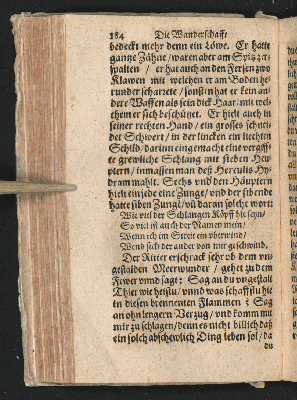 184 Die Wanderschafft
bedeckt mehr denn ein Löwe. Er hatte
gantze Zähne / waren aber am Spitz zer-
spalten / er hat auch an den Fersen zwo
Klawen mit welchen er am Boden he-
runder scharrete / sonst in hat er kein an-
dere Waffen als sein dick Haar / mit wel-
chem er sich beschützet. Er hielt auch in
seiner rechten Hand / ein grosses schnei-
det Schwert / in der lincken ein liechten
Schild / darinn eingemacht eine vergiff-
te grewliche Schlang mit sieben Heu-
ptern / inmassen man deß Herculis Hy-
dram mahlt. Sechs vnd den Häuptern
hielt ein jede eine Zunge / vnd der siebende
hatte siben Zunge / vñ daran solche wort:
Wie viel der Schlangen Köpff hie seyn /
So viel ist auch der Namen mein /
Wenn ich im Streit ein vberwind /
Wend sich der ander von mir geschwind.
Der Ritter erschrack sehr ob dem vn-
gestalden Meerwunder / gehet zu dem
Fewer vnnd sagt: Sag an du vngestalt
Thier wie heistu / vnnd was schaffstu hie
in diesen brennenten Flammen? Sag
an ohn lengern Verzug / vnd komm mit
mir zu schlagen / denn es nicht billich daß
ein solch abschewlich Ding leben sol / da